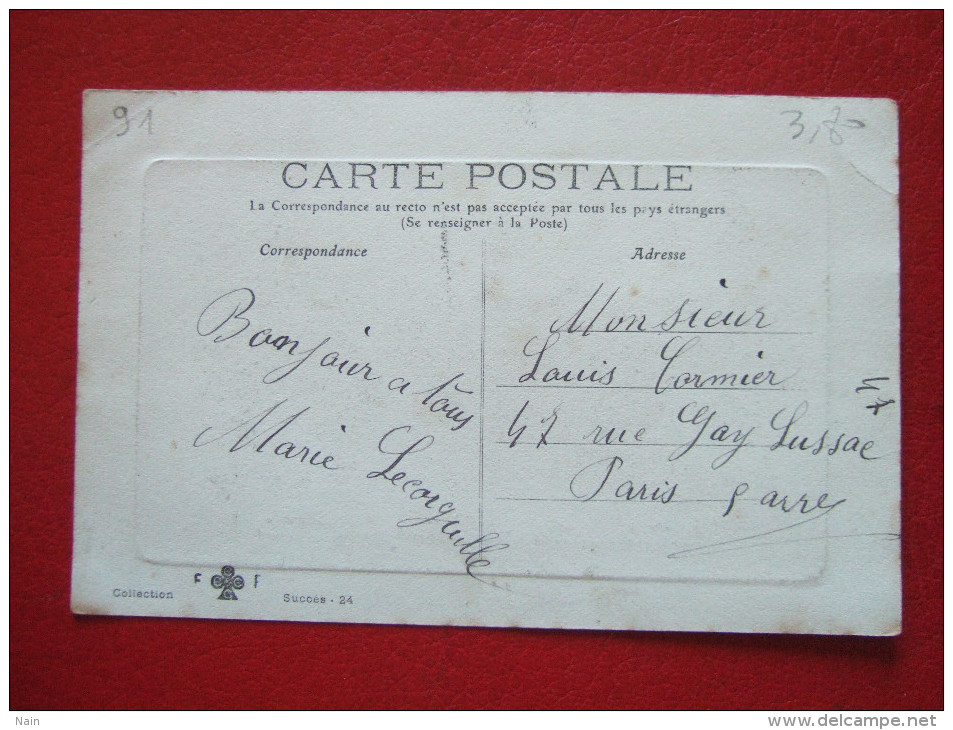 91
3,80
CARTE POSTALE
La Correspondance au recto n'est pas acceptée par tous les pays étrangers
(Se renseigner à la Poste)
Correspondance
Adresse
Bonjour a tous
Marie Lecorguillé
Monsieur
Louis Cormier
47 rue Gay Lussac
Paris 5 arre
47
Collection
F CCCC F
Succès - 24
Nain
www.delcampe.net